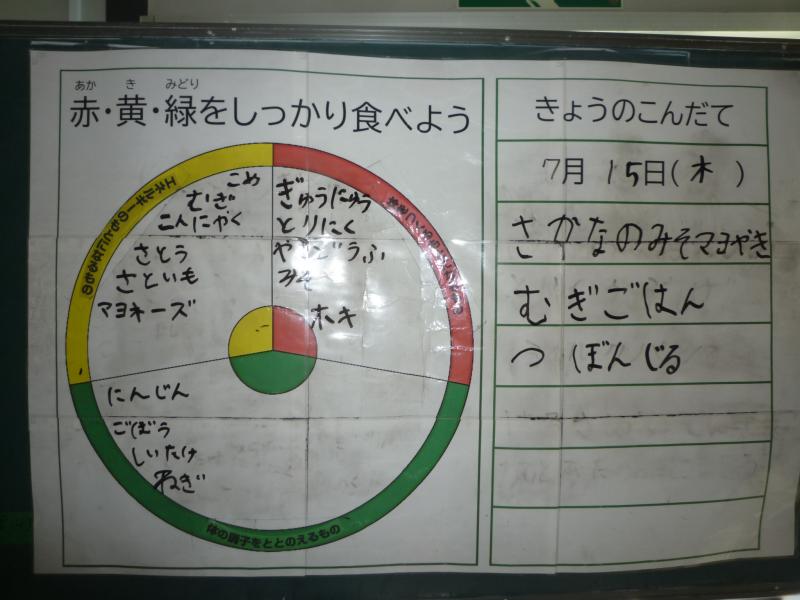 あか き みどり
赤・黄・緑をしっかり食べよう
エネルギーのもとになるもの
こめ
むぎ
こんにゃく
さとう
さといも
マヨネーズ
ぎゅうにゅう
とりにく
みそ
ホキ
にんじん
ごぼう
しいたけ
ねぎ
体の調子をととのえるもの
きょうのこんだて
7月 15日(木)
さかなのみそマヨやき
むぎごはん
つぼんじる